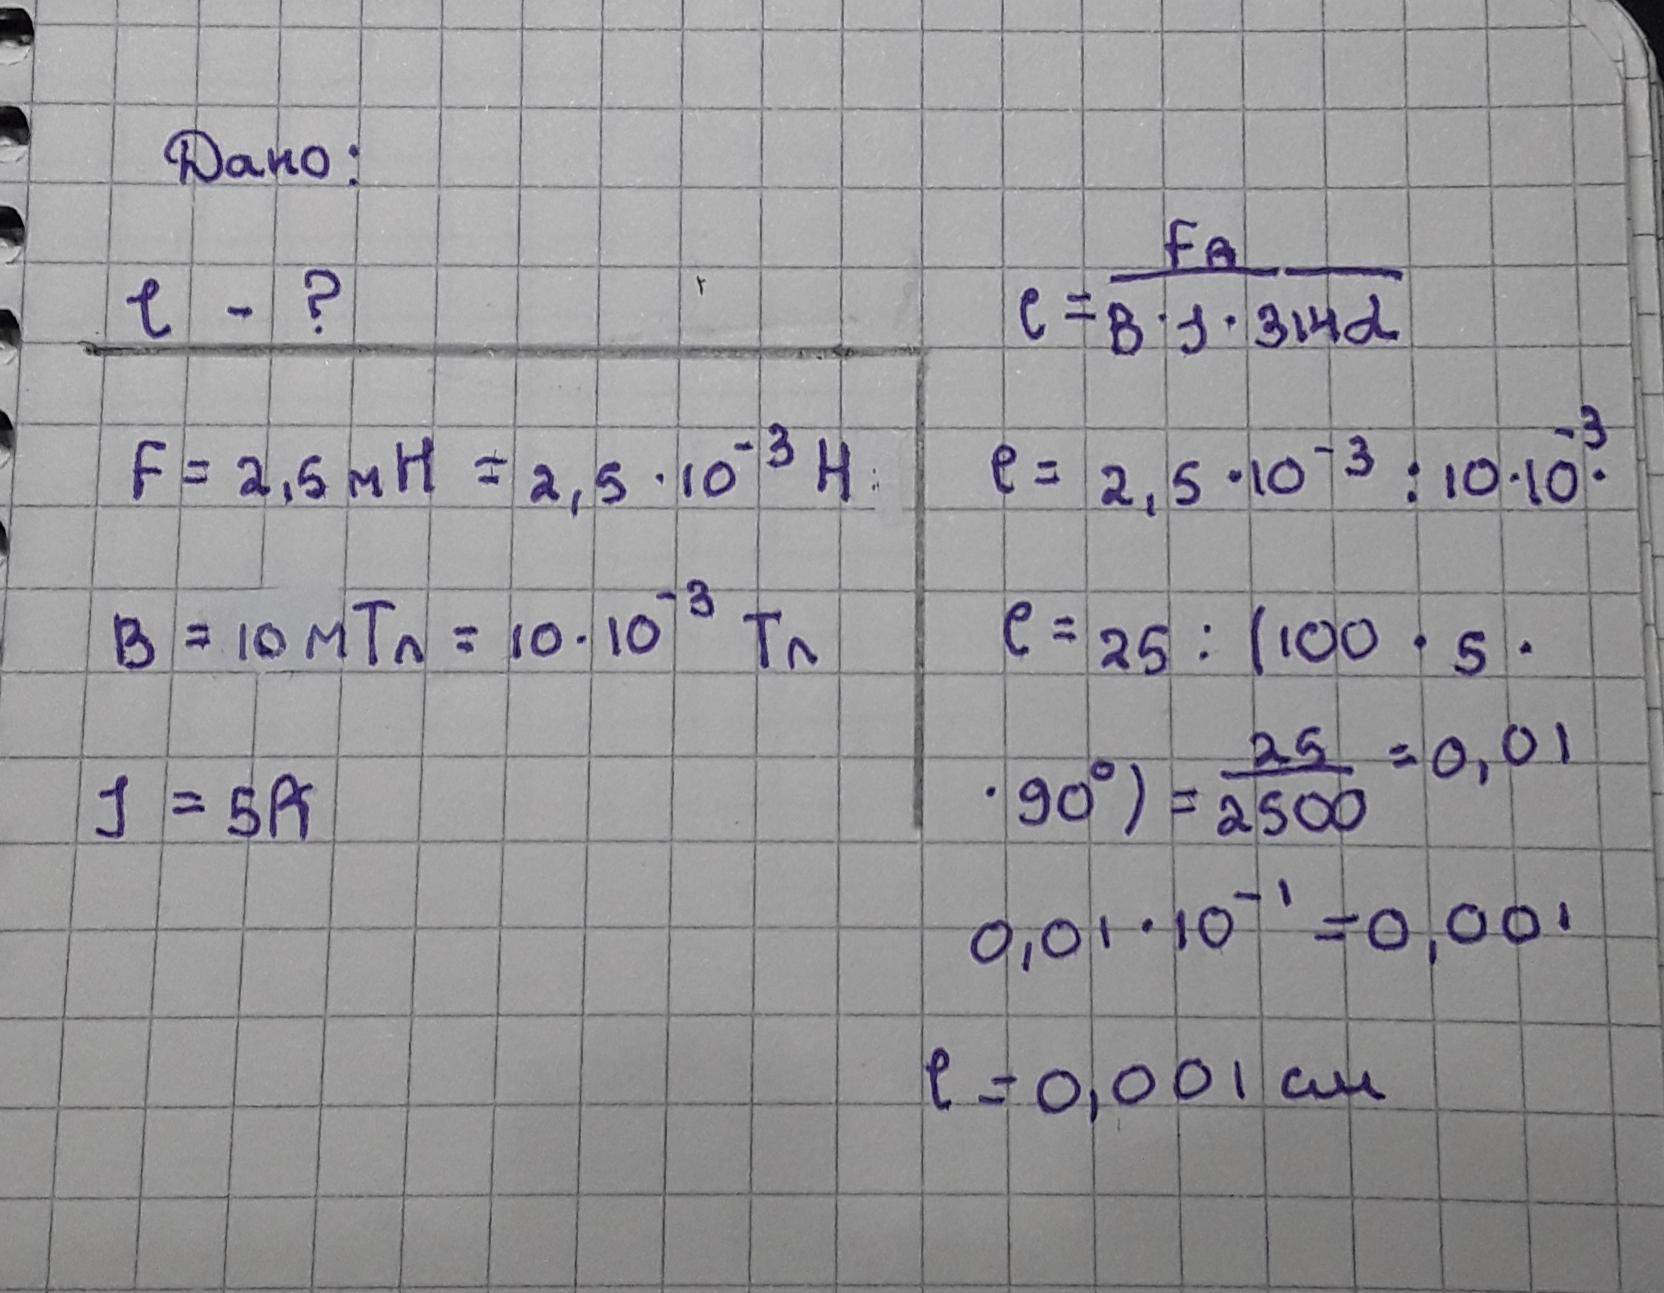 Дано:
l - ?
F = 2,5 мН = 2,5 · 10⁻³ Н
B = 10 мТл = 10 · 10⁻³ Тл
J = 5А
FА
l = B · J · sinα
l = 2,5 · 10⁻³ : 10 · 10⁻³ ·
l = 25 : (100 · 5 ·
· 90°) = 25/2500 = 0,01
0,01 · 10⁻¹ = 0,001
l = 0,001 см